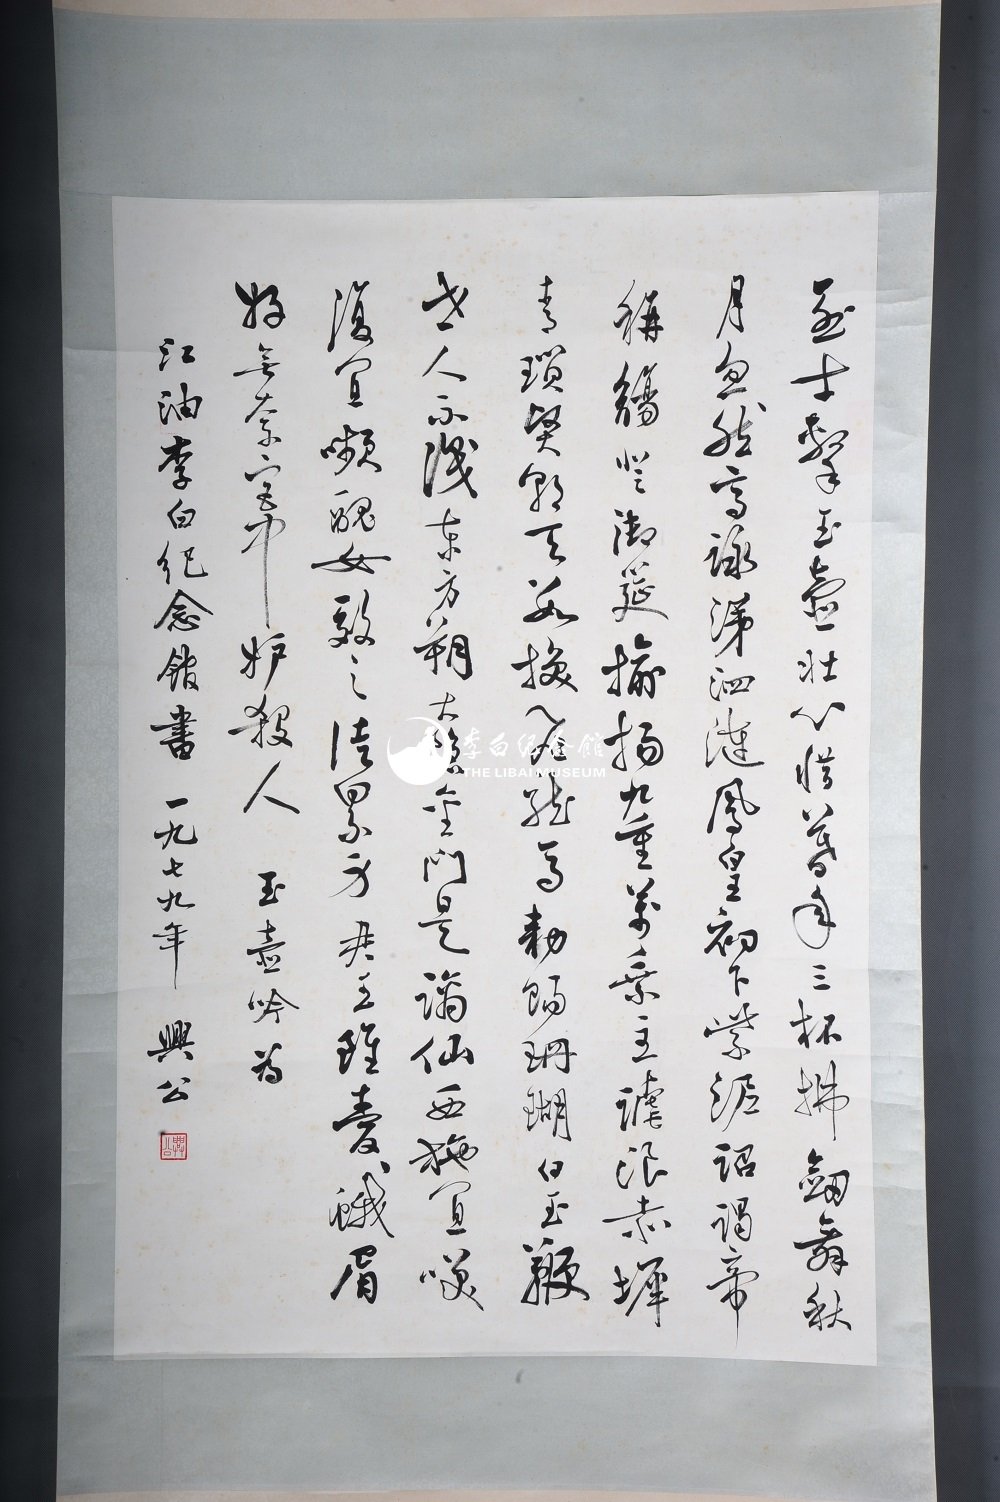 烈士擊玉壺壯心惜暮年三杯拂劍舞秋
月忽然高詠涕泗漣鳳皇初下紫泥詔謁帝
稱觴登御筵揄揚九重萬乘主謔浪赤墀
青瑣賢朝天數換飛龍馬勅賜珊瑚白玉鞭
世人不識東方朔大隱金門是謫仙西施宜咲
復宜嚬醜女效之徒累身君王雖愛蛾眉
好無奈宮中妒殺人 玉壺吟 為
江油李白紀念館書 一九七九年 興公
興公
李白纪念館
THE LIBAI MUSEUM